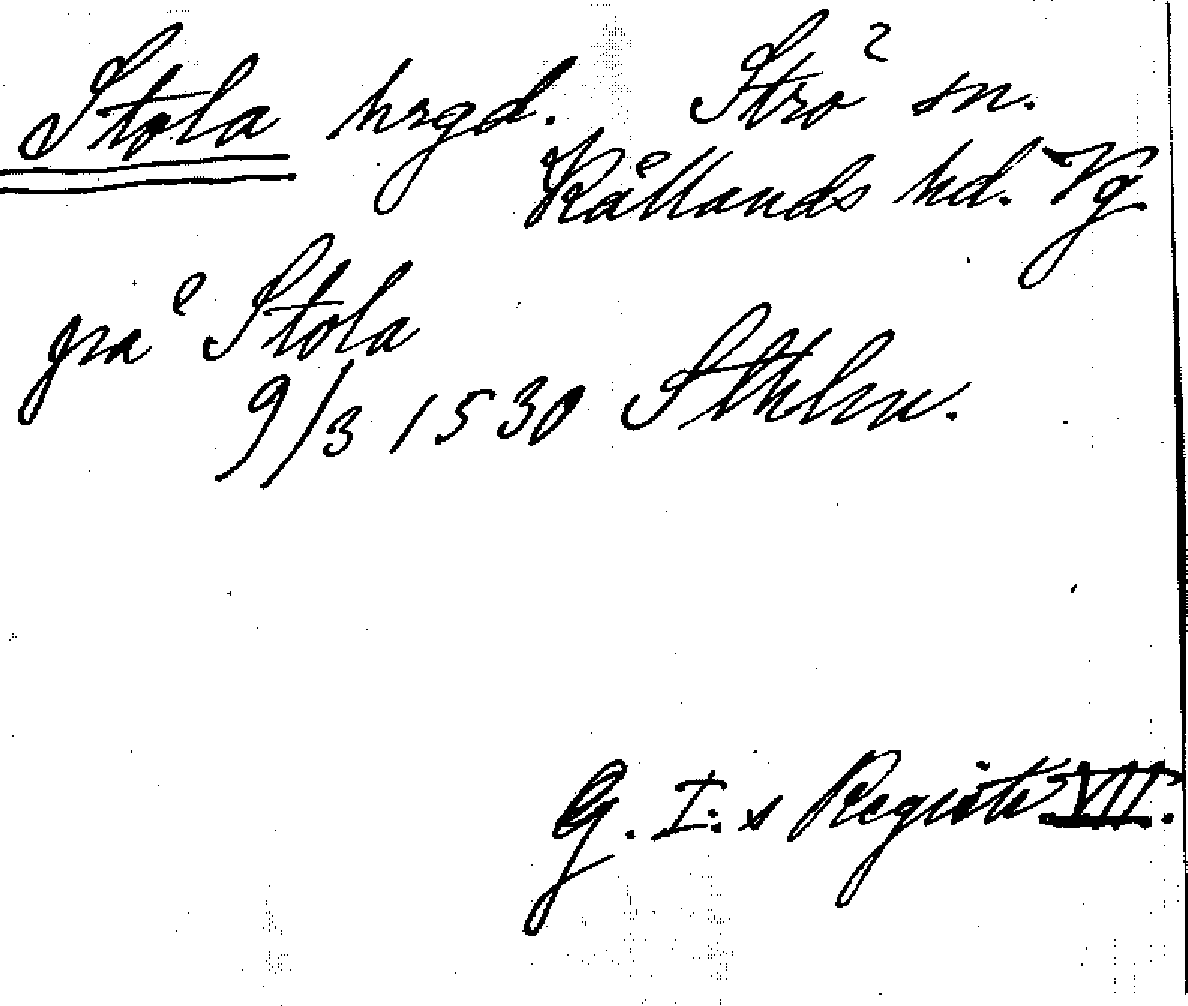 Stola hrgd. Strö sn.
Kållands hd. Vg
på Stola
9/3 1530 Sthlm.
G. I:s Registr VII.